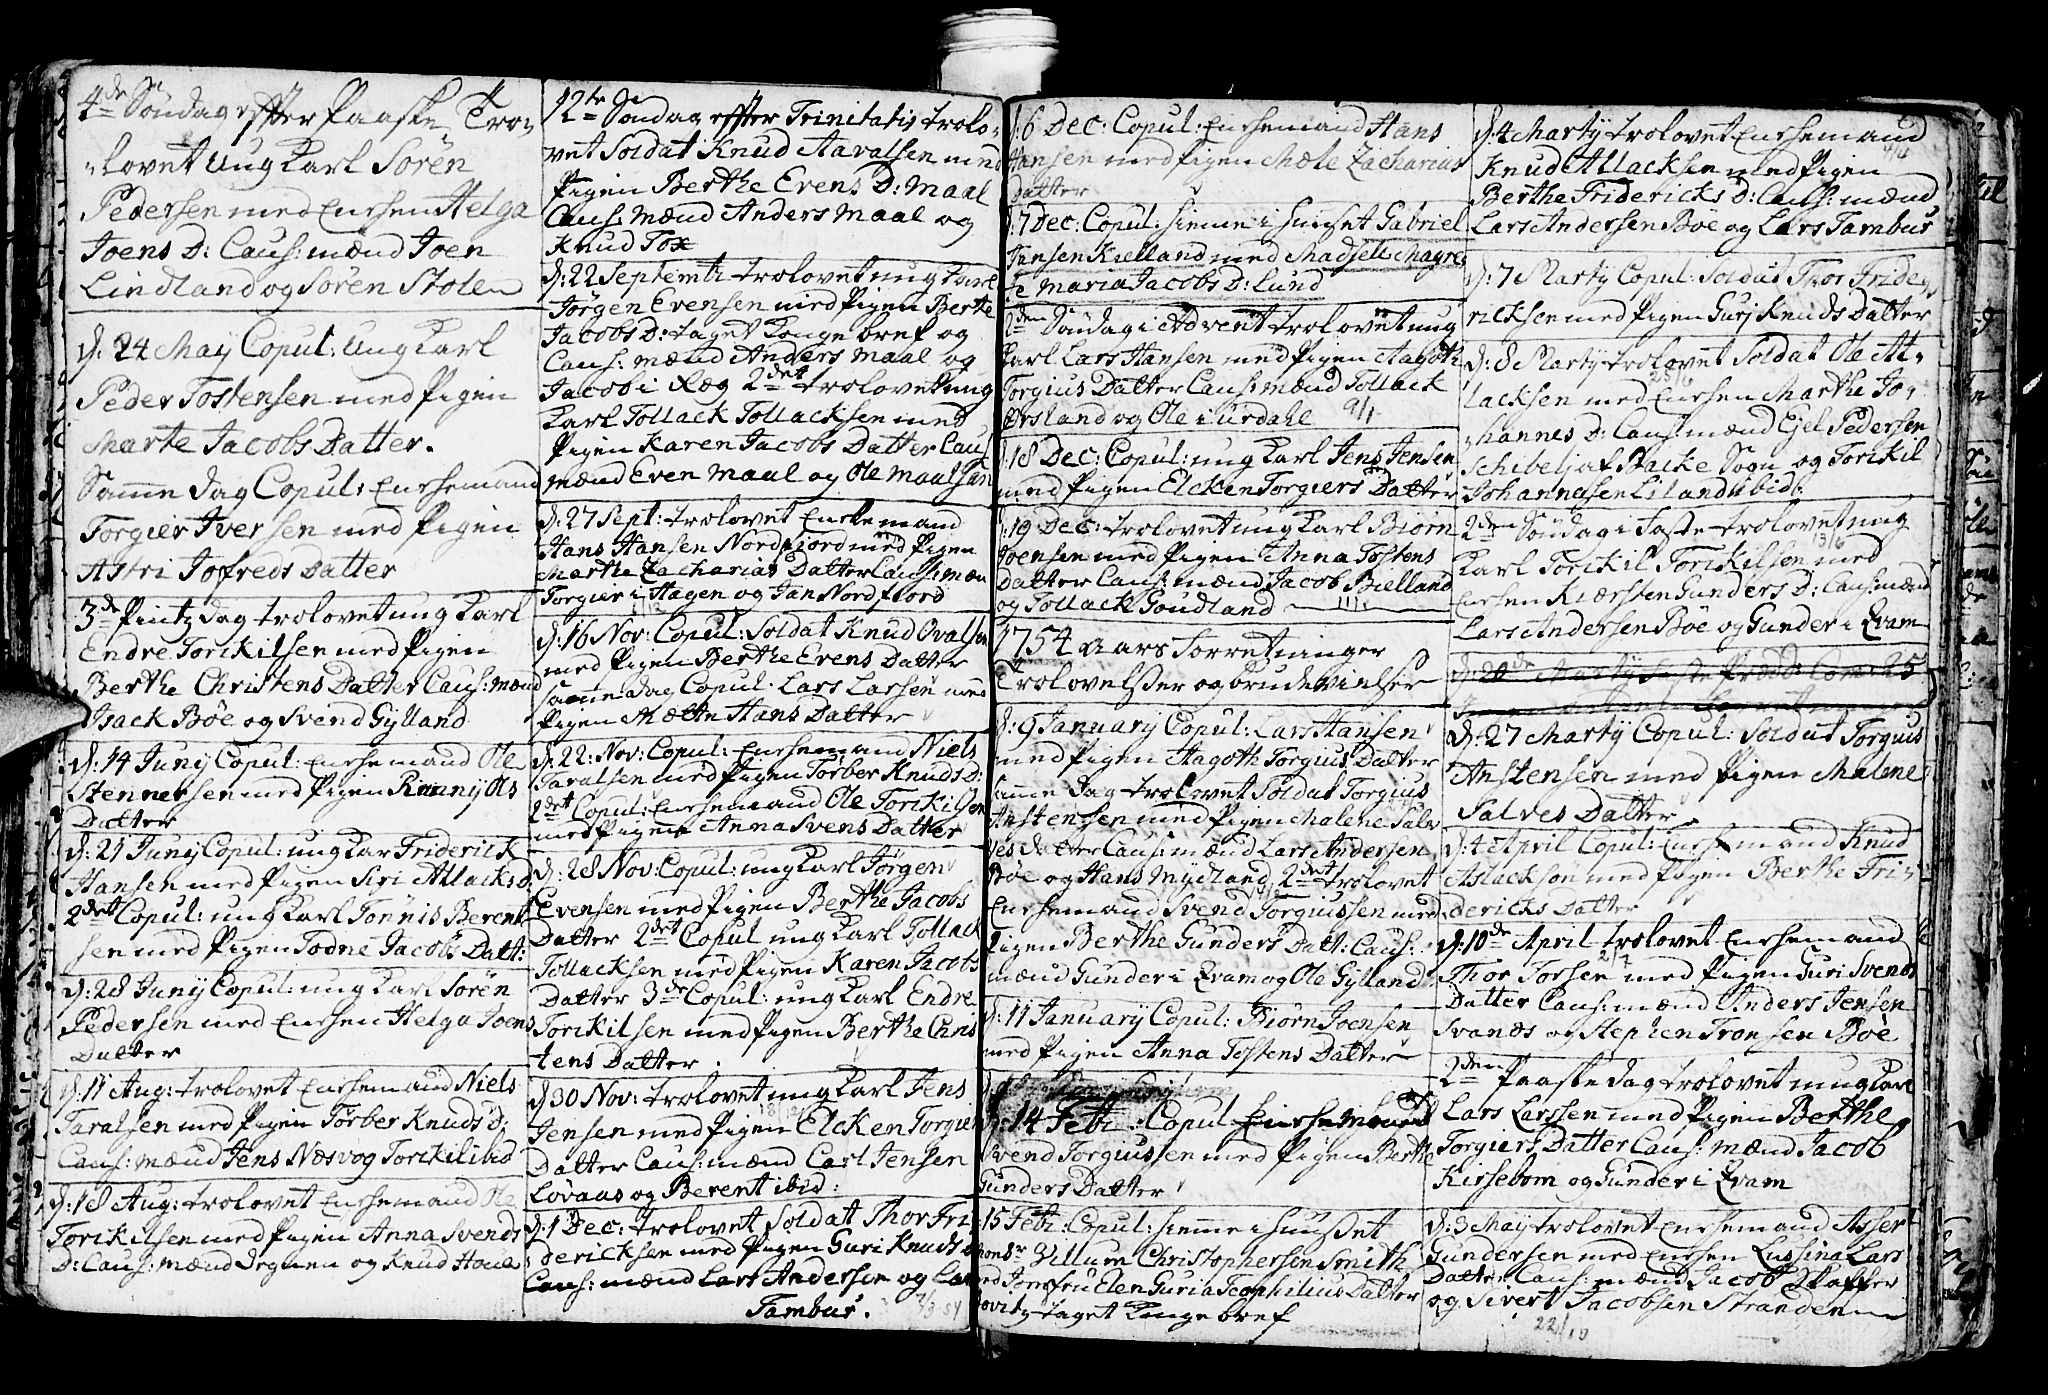 4de Søndag effter Paaske Tro,,
,,lovet Ung Karl Sørèn
Pedersen med Enchen Helga
Joens D: Caus: mænd Joen
Lindland og Sørèn Stolen
d. 24 May Copul: Ung Karl
Peder Tostensen med Pigen
Marte Jacobs Datter.
Samme dag Copul: Enchemand
Torgier Iversen med Pigen
Astri Jofreds Datter
3de Pintzdag trolovet ung Karl
Endre Torckilsen med Pigen
Berthe Christens Datter Caus: mænd
Isack Böe og Svend Gylland
d: 14 Juny Copul: Enchemand Ole
Stennersen med Pigen Ols
Datter
d: 21 Juny Copul: ung Kar Friderick
Hansen med Pigen Siri Atlacks D:
2det Copul: ung Karl Tönnis Berent
sen med Pigen Todne Jacobs Datt:
d: 28 Juny Copul: ung Karl Sørèn
Pedersen med Enchen Helga Joens
Datter
d: 11 Aug: trolovet Enchemand Niels
Taralsen med Pigen Törber Knuds D:
Caus: mænd Jens Næsvog Torckil ibid
d: 18 Aug: trolovet Enchemand Ole
Torckilsen med Pigen Anna Svends
D: Caus: mænd og Knud
12te Søndag effter Trinitatis trolo,
vet Soldat Knud Aavalsen med
Pigen Berthe Evens D: Maal
Caus: mænd Anders Maal og
Knud Fox
d: 22 Septembr trolovet ung Karl
Jörgen Evensen med Pigen Berthe
Jacobs D: taget Konge bref og
Caus: mænd Anders Maal og
Jacob i Ræg 2det trolovet ung
Karl Tollack Tollacksen med
Pigen Karen Jacobs Datter Caus
mænd Even Maal og Ole Maal
d: 27 Sept: trolovet Enchemand
Hans Hansen Nordfjord med Pigen
Marthe Zacharias Datter Caus: mæn
Torgier i Hagen og Jan Nordfiord
d: 16 Nov: Copul: Soldat Knud Ovalsen
med Pigen Berthe Evens Datter
samme dag Copul. Lars Larsen med
Pigen Mætte Hans Datter
d: 22: Nov: Copul: Enchemand Niels
Taralsen med Pigen Törber Knuds D:
2det Copul: Enchemand Ole Torckilsen
med Pigen Anna Svens Datter
d. 28 Nov: Copul: ung Karl Jörgen
Evensen med Pigen Berthe Jacobs
Datter 2det Copul ung Karl Tollack
Tollacksen med Pigen Karen Jacobs
Datter 3de Copul: ung Karl Endre
Torckilsen med Pigen Berthe Chris
tens Datter
d 30 Nov: trolovet ung Karl Jens
Jensen med Pigen Elcken Torgiers
Datter Caus: mænd Carl Jensen
Lövaas og Berent ibid:
d: 1 Dec: trolovet Soldat Thor Fri
dericksen med Pigen Guri Knuds D
Caus: mænd Lars Andersen og Lars
Tambur. 7/3 54
d: 6 Dec: Copul: Enchemand Hans
Hansen med Pigen Mæle Zacharias
Datter
d: 7 Dec: Copul: hiemme i huuset Gabriel
Jansen Kielland med Madselle Magre
te Maria Jacobs D: Lund
2den Søndag i Advent trolovet ung
Karl Lars Hansen med Pigen Aagoth
Torgius Datter Caus: mænd Tollack
Ørsland og Ole i Urdahl 9/1
d: 18 Dec: Copul: ung Karl Jens Jensen
med Pigen Elcken Torgiers Datter
d: 19 Dec: trolovet ung Karl Biörn
Joensen med Pigen Anna Tostens
Datter Caus: mænd Jacob Bielland
og Tollack Goudland
1754 Aars Forretninger
Trolovelser og brudevielser
d: 9 January Copul: Lars Hansen
med Pigen Hagoth Torgius Datter
samme dag trolovet Soldat Torgius
Anstensen med Pigen Malene Salv
ves datter Caus: mænd Lars Andersen
Böe og Hans Mydland 2det trolovet
Enchemand Svend Torgiussen med
Pigen Berthe Gunders Datt: Caus:
mænd Gunder i Qvam og Ole Gylland
d: 11 January Copul: Biörn Joensen
med Pigen Anna Tostens Datter
d: 14 Febr: Copul Enchemand
Svend Torgiussen med Pigen Berthe
Gunders Datter
15 Febr: Copul: hiemme i huuset
Monsr Villum Christophersen Smith
med Jomfru Elen Guria Teophilius Datter
taget Konge bref
d: 4 Marty trolovet Enchemand
Knud Atlacksen med Pigen
Berthe Fridericks D: Caus: mænd
Lars Andersen Böe og Lars Tambur
d: 7 Marty Copul: Soldat Thor Fride,,
ricksen med Pigen Gurj Knuds Datter
d: 8 Marty trolovet Soldat Ole At,,
lacksen med Enchen Marthe Jo,,
,,hannes D: Caus: mænd Ejel Pedersen
Schibelj af Backe Sogn og Torckil
Johannesen Liland ibid:
2den Søndag i Faste trolovet ung
13/6
Karl Torckil Torckilsen med
Enchen Kiersten Gunders D: Caus: mænd
Lars Andersen Böe og Gunder i Qvam
d: 27 Marty Copul: Soldat Torgius
Anstensen med Pigen Malene
Salves Datter
d: 4 April Copul: Enchemand Knud
Aslacksøn med Pigen Berthe Fri,,
dericks Datter
d: 10de April trolovet Enchemand
2/7
Thor Torsen med Pigen Guri Svends
Datter Caus: mænd Anders Jensen
Svanæs og Stephen Tronsen Böe
2den Paaske dag trolovet ung Karl
Lars Larssen med Pigen Berthe
Torgiers Datter Caus: mænd Jacob
Kirsebom og Gunder i Qvam
d: 3 May trolovet Enchemand Asser
Gundersen med Enchen Lussina Lars
Datter Caus: mænd Jacob Skaffer
og Sivert Jacobsen Stranden
22/10